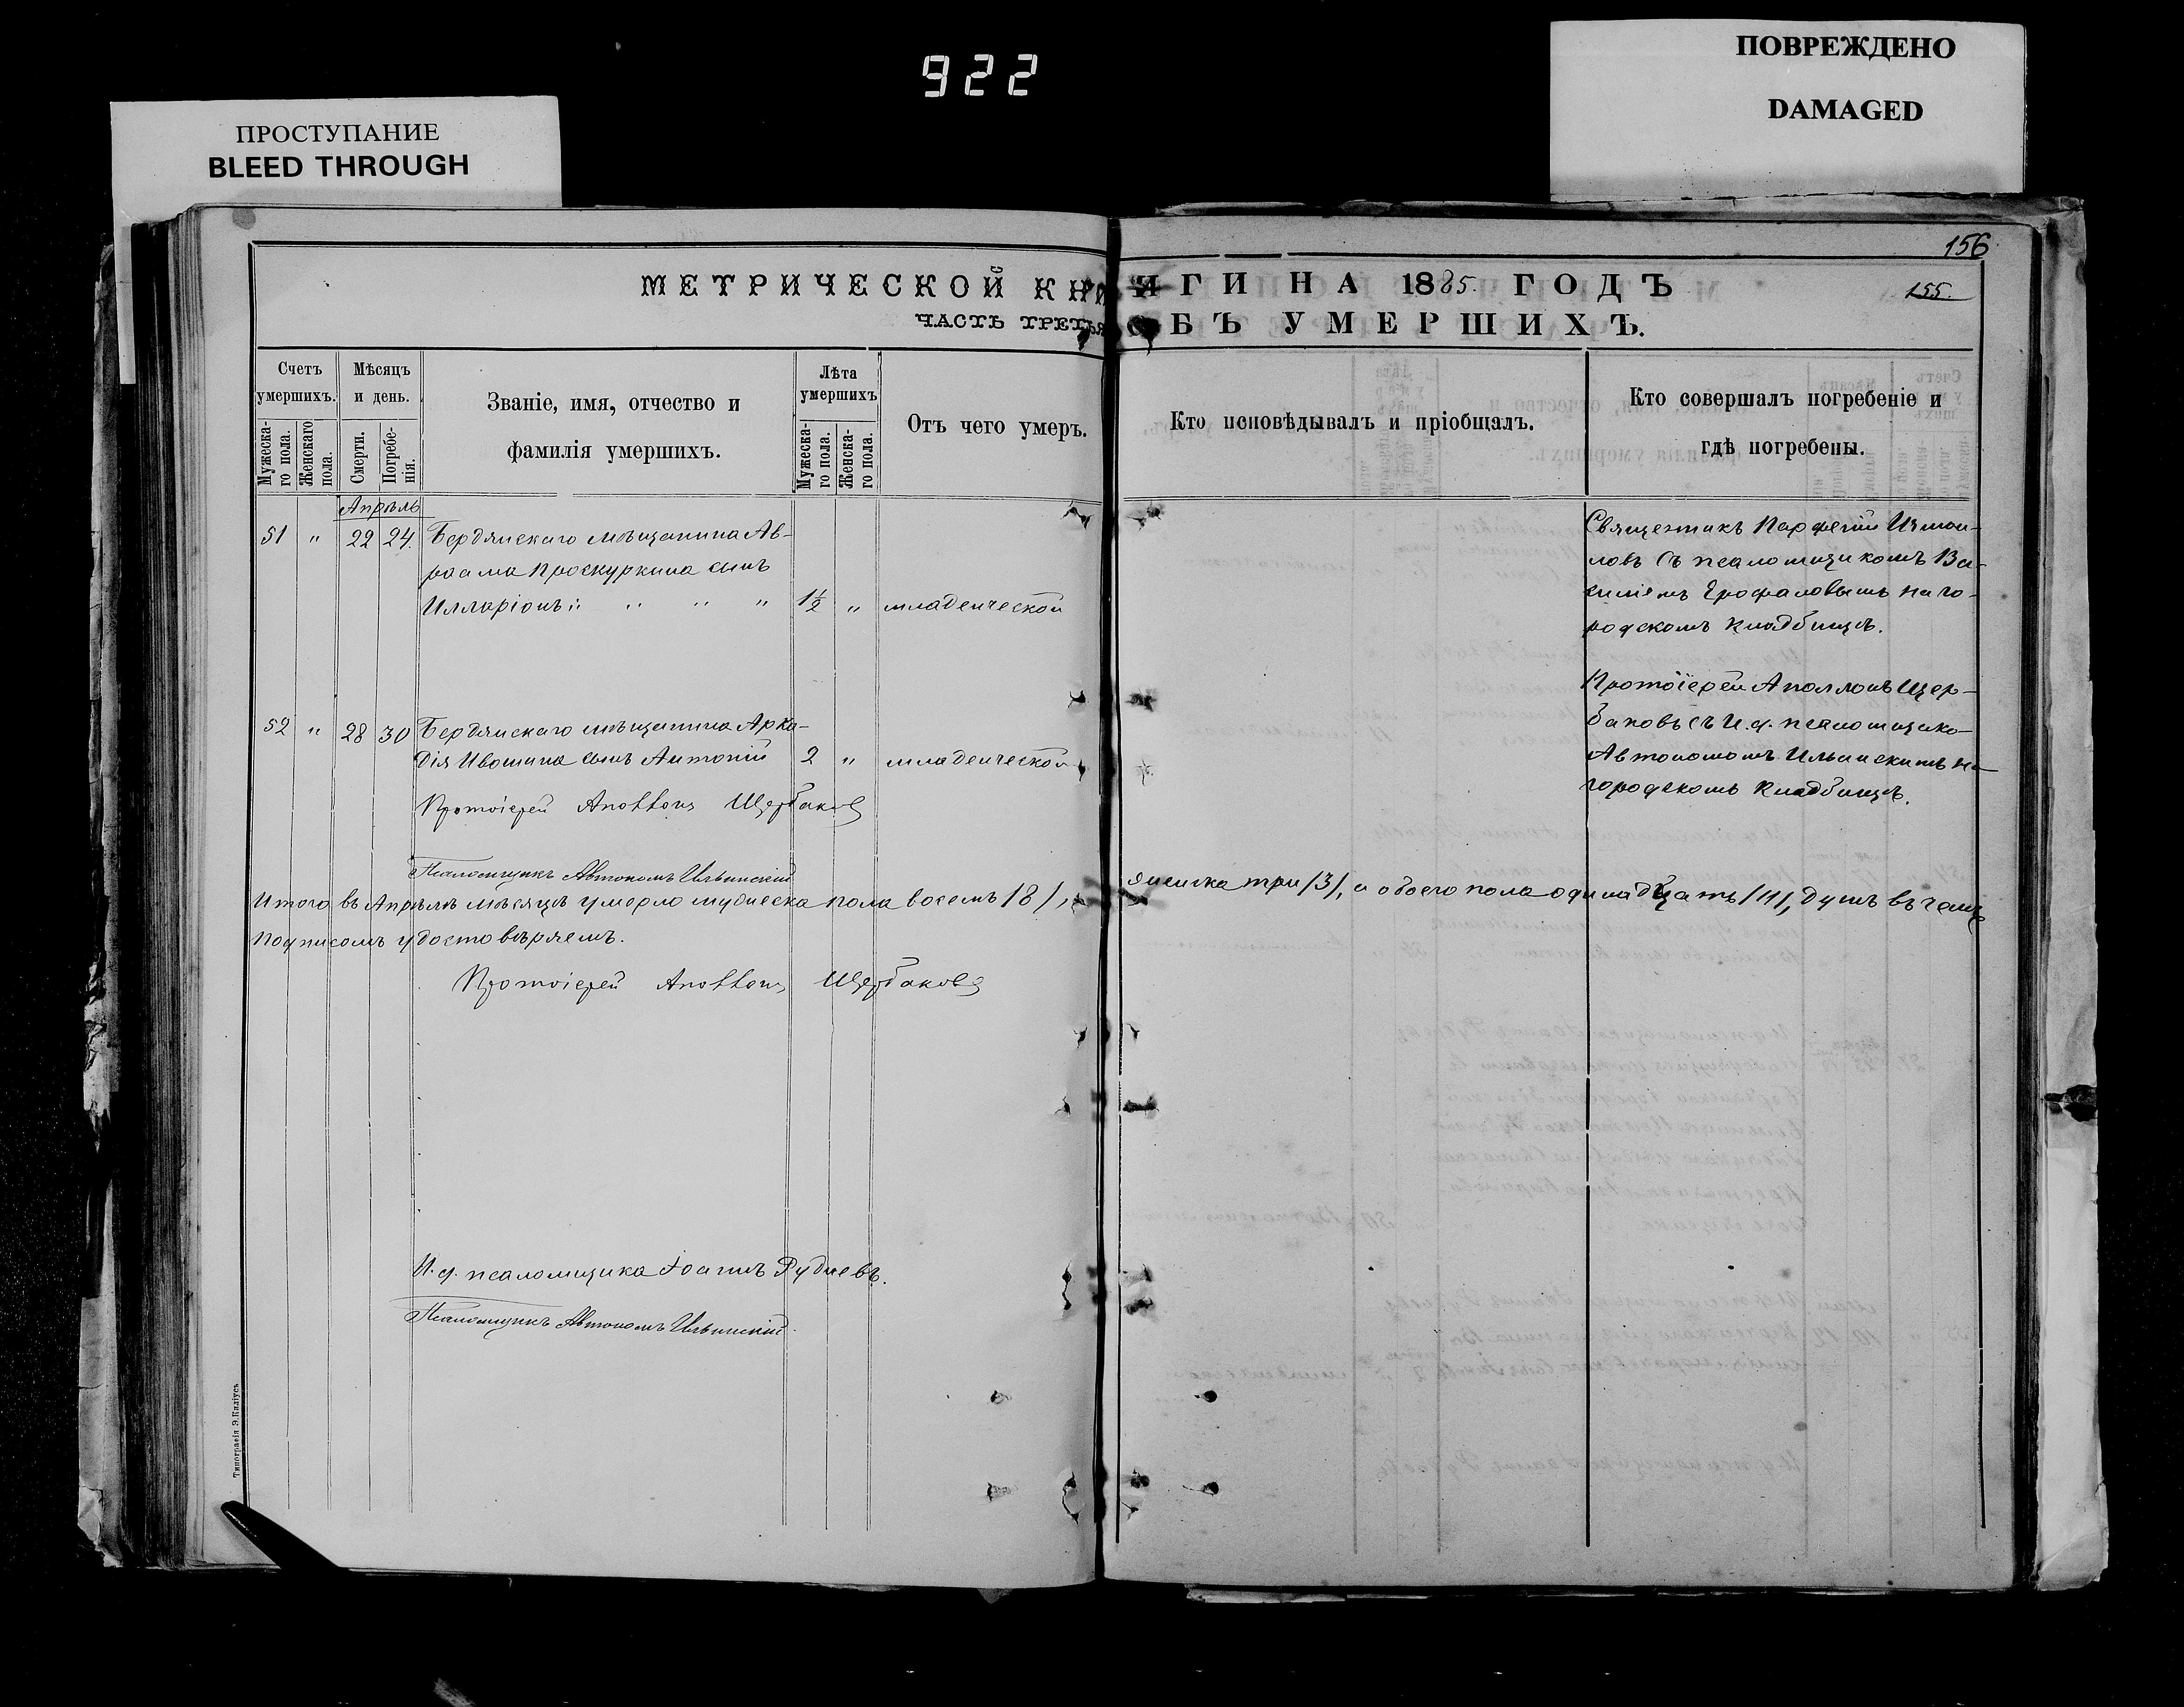 922
ПРОСТУПАНИЕ
BLEED THROUGH
ПОВРЕЖДЕНО
DAMAGED
156
155.
МЕТРИЧЕСКОЙ КНИГИ НА 1885 ГОДЪ
ЧАСТЬ ТРЕТЬЯ ОБЪ УМЕРШИХЪ.
Счетъ умершихъ.
Мужеска-го пола.
Женскаго пола.
Мѣсяцъ и день.
Смерти.
Погребе-нія.
Званіе, имя, отчество и
фамилія умершихъ.
Лѣта умершихъ
Мужеска-го пола.
Женска-го пола.
Отъ чего умеръ.
Кто исповѣдывалъ и пріобщалъ.
Кто совершалъ погребеніе и
гдѣ погребены.
Апрѣль
51 " 22 24. Бердянскаго мѣщанина Ав-
раама Проскуркина сынъ
Илларіонъ: " " " 1½ " младенческой
Священникъ Парфеній Измаи-
ловъ съ псаломщикомъ Ва-
силіемъ Ерофаловымъ на го-
родскомъ кладбищѣ.
52 " 28 30 Бердянскаго мѣщанина Арка-
дія Ивошина сынъ Антоній 2 " младенческой
Протоіерей Аполлонъ Щер-
баковъ съ И.д. псаломщика
Автономомъ Ильинскимъ на
городскомъ кладбищѣ.
Протоіерей Аполлонъ Щербаковъ
Псаломщикъ Автономъ Ильинскій
Итого въ Апрѣлѣ мѣсяцѣ умерло мужеска пола восемь /8/, женска три /3/, а обоего пола одинадцать /11/, душъ въ чемъ
подписомъ удостовѣряемъ.
Протоіерей Аполлонъ Щербаковъ
И.д. псаломщика Іоаннъ Рудневъ.
Псаломщикъ Автономъ Ильинскій.
Типографія Э. Килiусъ